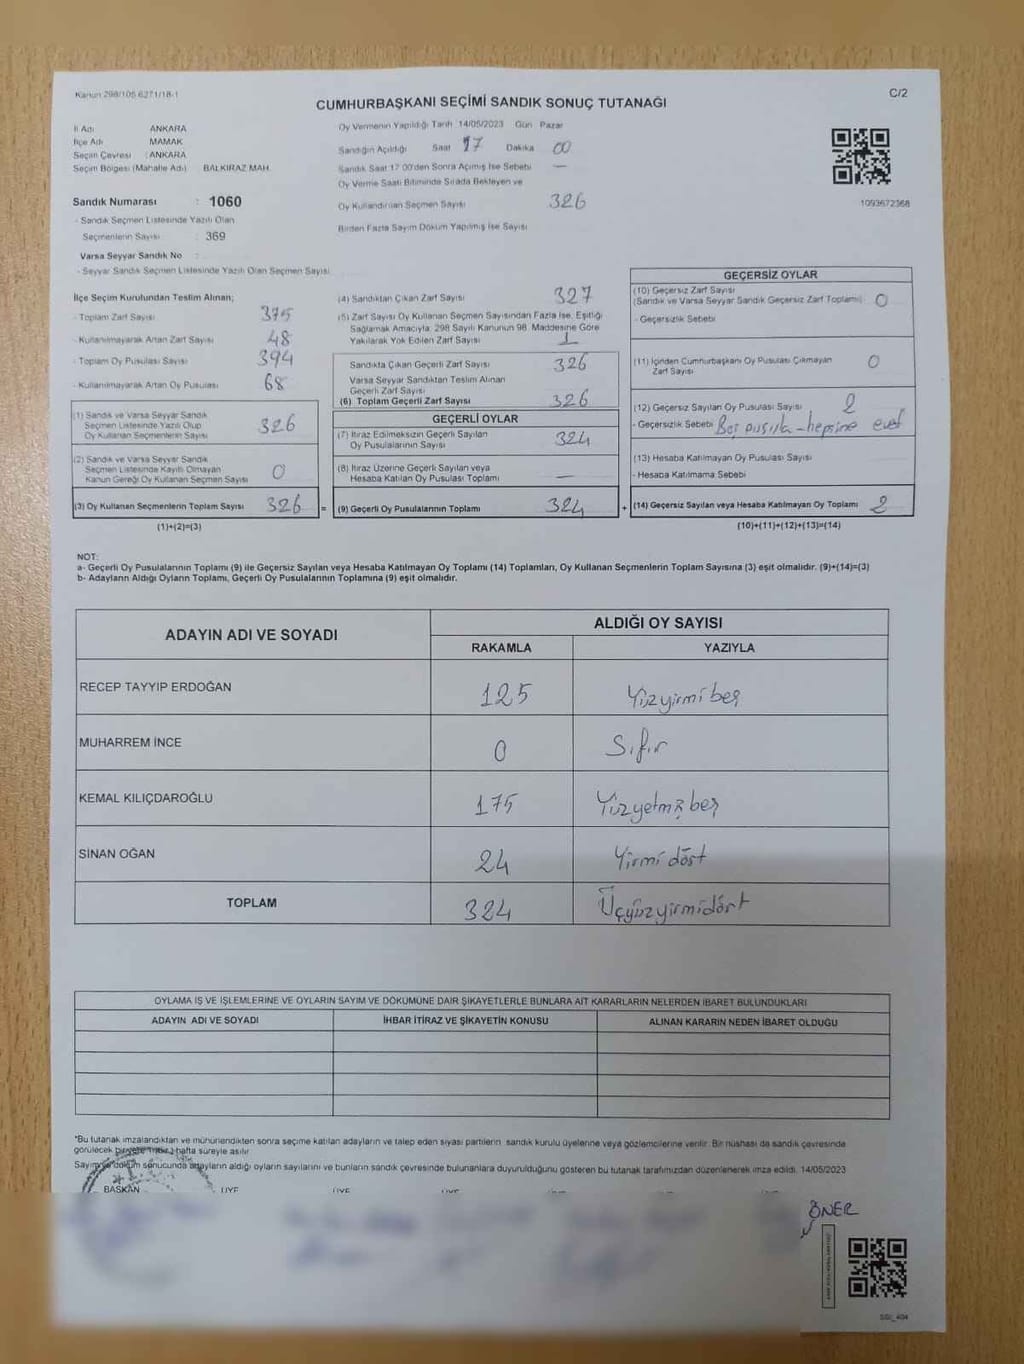 Kanun 298/105 6271/18-1
C/2
CUMHURBAŞKANI SEÇİMİ SANDIK SONUÇ TUTANAĞI
İl Adı ANKARA
İlçe Adı MAMAK
Seçim Çevresi : ANKARA
Seçim Bölgesi (Mahalle Adı) BALKIRAZ MAH.
Sandık Numarası : 1060
- Sandık Seçmen Listesinde Yazılı Olan
Seçmenlerin Sayısı : 369
Varsa Seyyar Sandık No :
- Seyyar Sandık Seçmen Listesinde Yazılı Olan Seçmen Sayısı
Oy Vermenin Yapıldığı Tarih 14/05/2023 Gün Pazar
Sandığın Açıldığı Saat 17 Dakika 00
Sandık Saat 17:00'den Sonra Açılmış İse Sebebi —
Oy Verme Saati Bitiminde Sırada Bekleyen ve
Oy Kullandırılan Seçmen Sayısı 326
Birden Fazla Sayım Döküm Yapılmış İse Sayısı
1093672368
İlçe Seçim Kurulundan Teslim Alınan;
- Toplam Zarf Sayısı 375
- Kullanılmayarak Artan Zarf Sayısı 48
- Toplam Oy Pusulası Sayısı 394
- Kullanılmayarak Artan Oy Pusulası 68
(1) Sandık ve Varsa Seyyar Sandık
Seçmen Listesinde Yazılı Olup
Oy Kullanan Seçmenlerin Sayısı 326
(2) Sandık ve Varsa Seyyar Sandık
Seçmen Listesinde Kayıtlı Olmayan
Kanun Gereği Oy Kullanan Seçmen Sayısı 0
(3) Oy Kullanan Seçmenlerin Toplam Sayısı 326 =
(1)+(2)=(3)
(4) Sandıktan Çıkan Zarf Sayısı 327
(5) Zarf Sayısı Oy Kullanan Seçmen Sayısından Fazla İse, Eşitliği
Sağlamak Amacıyla; 298 Sayılı Kanunun 98. Maddesine Göre
Yakılarak Yok Edilen Zarf Sayısı 1
Sandıkta Çıkan Geçerli Zarf Sayısı 326
Varsa Seyyar Sandıktan Teslim Alınan
Geçerli Zarf Sayısı
(6) Toplam Geçerli Zarf Sayısı 326
GEÇERLİ OYLAR
(7) İtiraz Edilmeksizin Geçerli Sayılan
Oy Pusulalarının Sayısı 324
(8) İtiraz Üzerine Geçerli Sayılan veya
Hesaba Katılan Oy Pusulası Toplamı —
(9) Geçerli Oy Pusulalarının Toplamı 324 +
GEÇERSİZ OYLAR
(10) Geçersiz Zarf Sayısı
(Sandık ve Varsa Seyyar Sandık Geçersiz Zarf Toplamı) 0
- Geçersizlik Sebebi
(11) İçinden Cumhurbaşkanı Oy Pusulası Çıkmayan
Zarf Sayısı 0
(12) Geçersiz Sayılan Oy Pusulası Sayısı 2
- Geçersizlik Sebebi Boş pusula - hepsine evet
(13) Hesaba Katılmayan Oy Pusulası Sayısı
- Hesaba Katılmama Sebebi
(14) Geçersiz Sayılan veya Hesaba Katılmayan Oy Toplamı 2
(10)+(11)+(12)+(13)=(14)
NOT:
a- Geçerli Oy Pusulalarının Toplamı (9) ile Geçersiz Sayılan veya Hesaba Katılmayan Oy Toplamı (14) Toplamları, Oy Kullanan Seçmenlerin Toplam Sayısına (3) eşit olmalıdır. (9)+(14)=(3)
b- Adayların Aldığı Oyların Toplamı, Geçerli Oy Pusulalarının Toplamına (9) eşit olmalıdır.
ADAYIN ADI VE SOYADI ALDIĞI OY SAYISI
RAKAMLA YAZIYLA
RECEP TAYYIP ERDOĞAN 125 Yüzyirmi beş
MUHARREM İNCE 0 Sıfır
KEMAL KILIÇDAROĞLU 175 Yüzyetmiş beş
SİNAN OĞAN 24 Yirmi dört
TOPLAM 324 Üçyüzyirmidört
OYLAMA İŞ VE İŞLEMLERİNE VE OYLARIN SAYIM VE DÖKÜMÜNE DAİR ŞİKAYETLERLE BUNLARA AİT KARARLARIN NELERDEN İBARET BULUNDUKLARI
ADAYIN ADI VE SOYADI İHBAR İTİRAZ VE ŞİKAYETİN KONUSU ALINAN KARARIN NEDEN İBARET OLDUĞU
*Bu tutanak imzalandıktan ve mühürlendikten sonra seçime katılan adayların ve talep eden siyasi partilerin sandık kurulu üyelerine veya gözlemcilerine verilir. Bir nüshası da sandık çevresinde
görülecek bir yere hafta süreyle asılır.
Sayım ve döküm sonucunda adayların aldığı oyların sayılarını ve bunların sandık çevresinde bulunanlara duyurulduğunu gösteren bu tutanak tarafımızdan düzenlenerek imza edildi. 14/05/2023
BAŞKAN ÜYE ÜYE ÜYE ÜYE
ÖNER